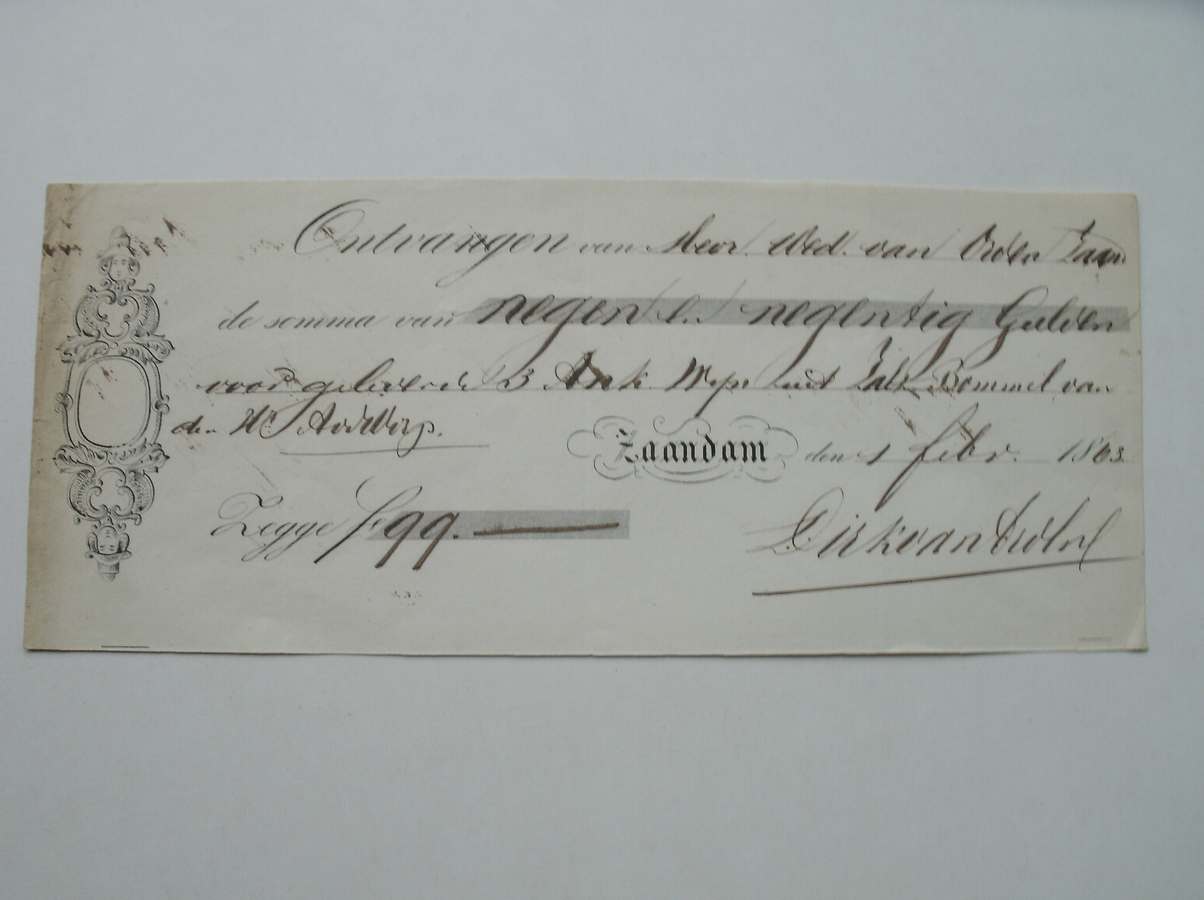 Ontvangen van Mevr. Wed. van Orden Zaan
de somma van negen en negentig Gulden
voor geleverde 3 Ank. Wijn uit Zalt Bommel van
den Hr
Zaandam den 1 febr. 1863
Zegge f 99.—
Dirk van Orden